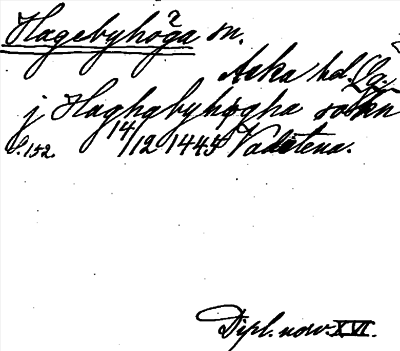 Hagebyhöga sn.
Aska hd. Ög.
j Haghabyhøgha sokn
S. 152. 14/12 1445 Vadstena.
Dipl. norv. XVI.